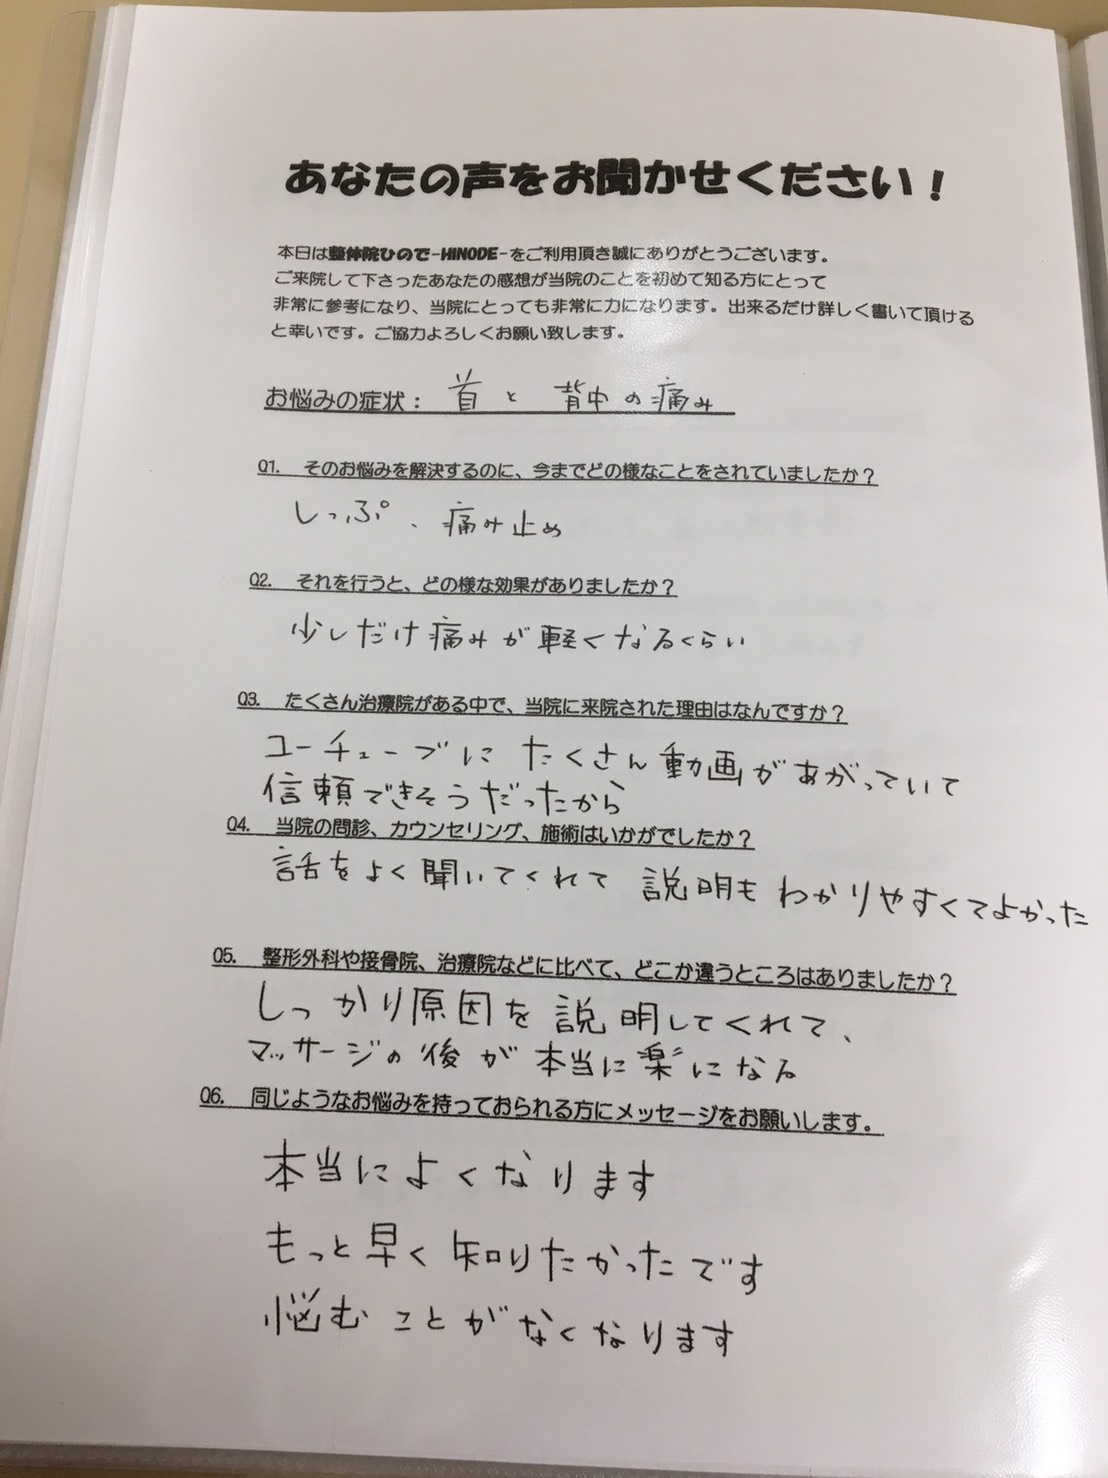 あなたの声をお聞かせください！
本日は整体院ひので-HINODE-をご利用頂き誠にありがとうございます。
ご来院して下さったあなたの感想が当院のことを初めて知る方にとって
非常に参考になり、当院にとっても非常に力になります。出来るだけ詳しく書いて頂ける
と幸いです。ご協力よろしくお願い致します。
お悩みの症状：首と背中の痛み
Q1. そのお悩みを解決するのに、今までどの様なことをされていましたか？
しっぷ、痛み止め
Q2. それを行うと、どの様な効果がありましたか？
少しだけ痛みが軽くなるくらい
Q3. たくさん治療院がある中で、当院に来院された理由はなんですか？
ユーチューブにたくさん動画があがっていて
信頼できそうだったから
Q4. 当院の問診、カウンセリング、施術はいかがでしたか？
話をよく聞いてくれて 説明もわかりやすくてよかった
Q5. 整形外科や接骨院、治療院などに比べて、どこか違うところはありましたか？
しっかり原因を説明してくれて、
マッサージの後が本当に楽になる
Q6. 同じようなお悩みを持っておられる方にメッセージをお願いします。
本当によくなります
もっと早く知りたかったです
悩むことがなくなります